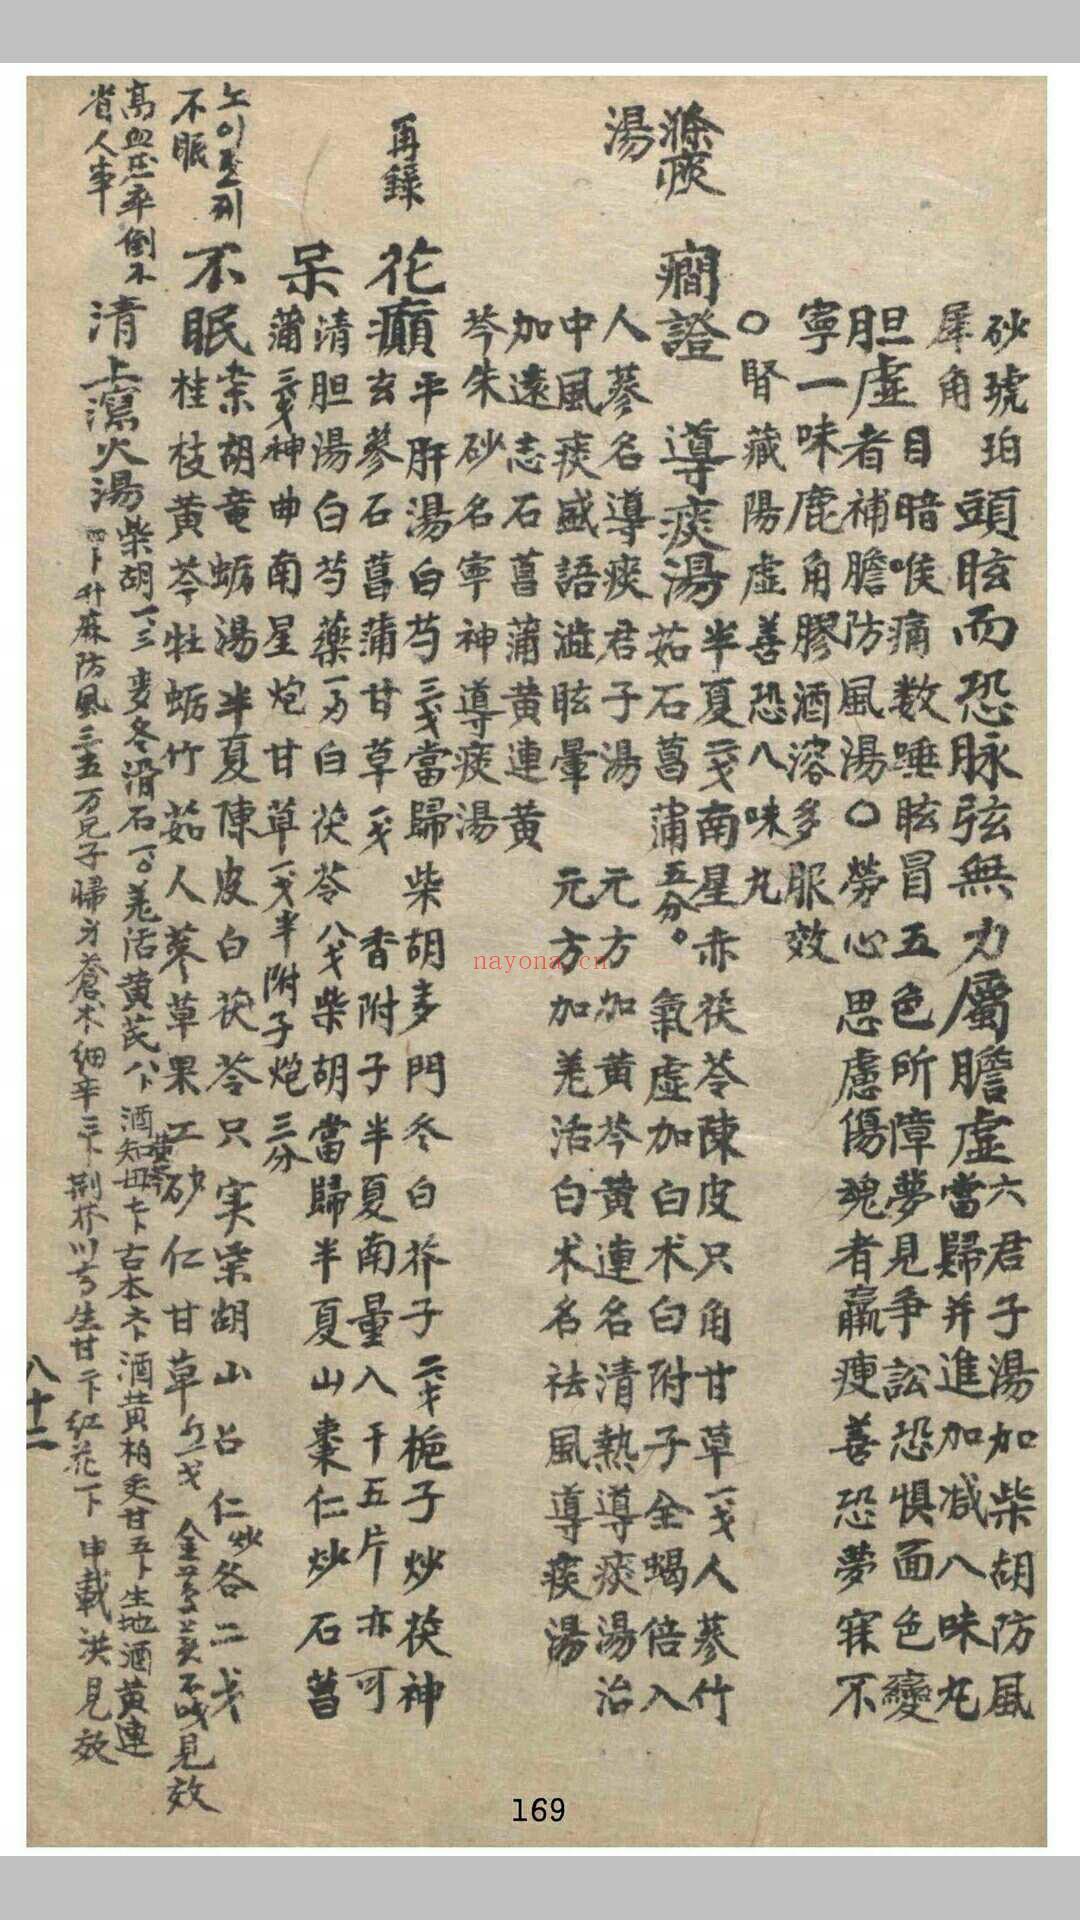 砂琥珀頭眩而恐脉弦無力屬膽虛六君子湯加柴胡防風
犀角
當歸并進加减八味丸
胆虛目暗喉痛数唾眩冒五色所障夢見争訟恐惧面色變
者補膽防風湯〇勞心思慮傷魂者羸痩善恐夢寐不
寧一味鹿角膠酒溶多服效
〇腎藏陽虛善恐八味丸
滌痰湯
癎證
導痰湯半夏二戔南星赤茯苓陳皮只角甘草一戔人蔘竹
茹石菖蒲五分。
氣虛加白术白附子全蝎倍入
人蔘名導痰君子湯
元方加黄芩黄連名清熱導痰湯治
中風痰盛語澁眩暈
元方加羌活白术名祛風導痰湯
加遠志石菖蒲黄連黄
芩朱砂名寧神導痰湯
再錄
花癲平肝湯白芍三戔當歸柴胡麦門冬白芥子二戔梔子炒茯神
玄蔘石菖蒲甘草戔
香附子半夏南量入干五片亦可
呆
清胆湯白芍藥一刃白茯苓八戔柴胡當歸半夏山棗仁炒石菖
蒲三戔神曲南星炮甘草一戔半附子炮三分
不眠
不眠柴胡竜蛎湯半夏陳皮白茯苓只実柴胡山召仁炒各二戔
桂枝黄芩牡蛎竹茹人蔘草果工砂仁甘草
見效
高血圧卒倒不
省人事
清上瀉火湯柴胡一、三麦冬滑石一。羌活黄芪八卜酒知母
黄芩
古本
酒黄柏炙甘五卜生地酒黄連
四卜升麻防風三五
歸身蒼术細辛三卜荆芥川芎生甘二卜紅花一卜申載洪見效
八十二
169
nayona.cn